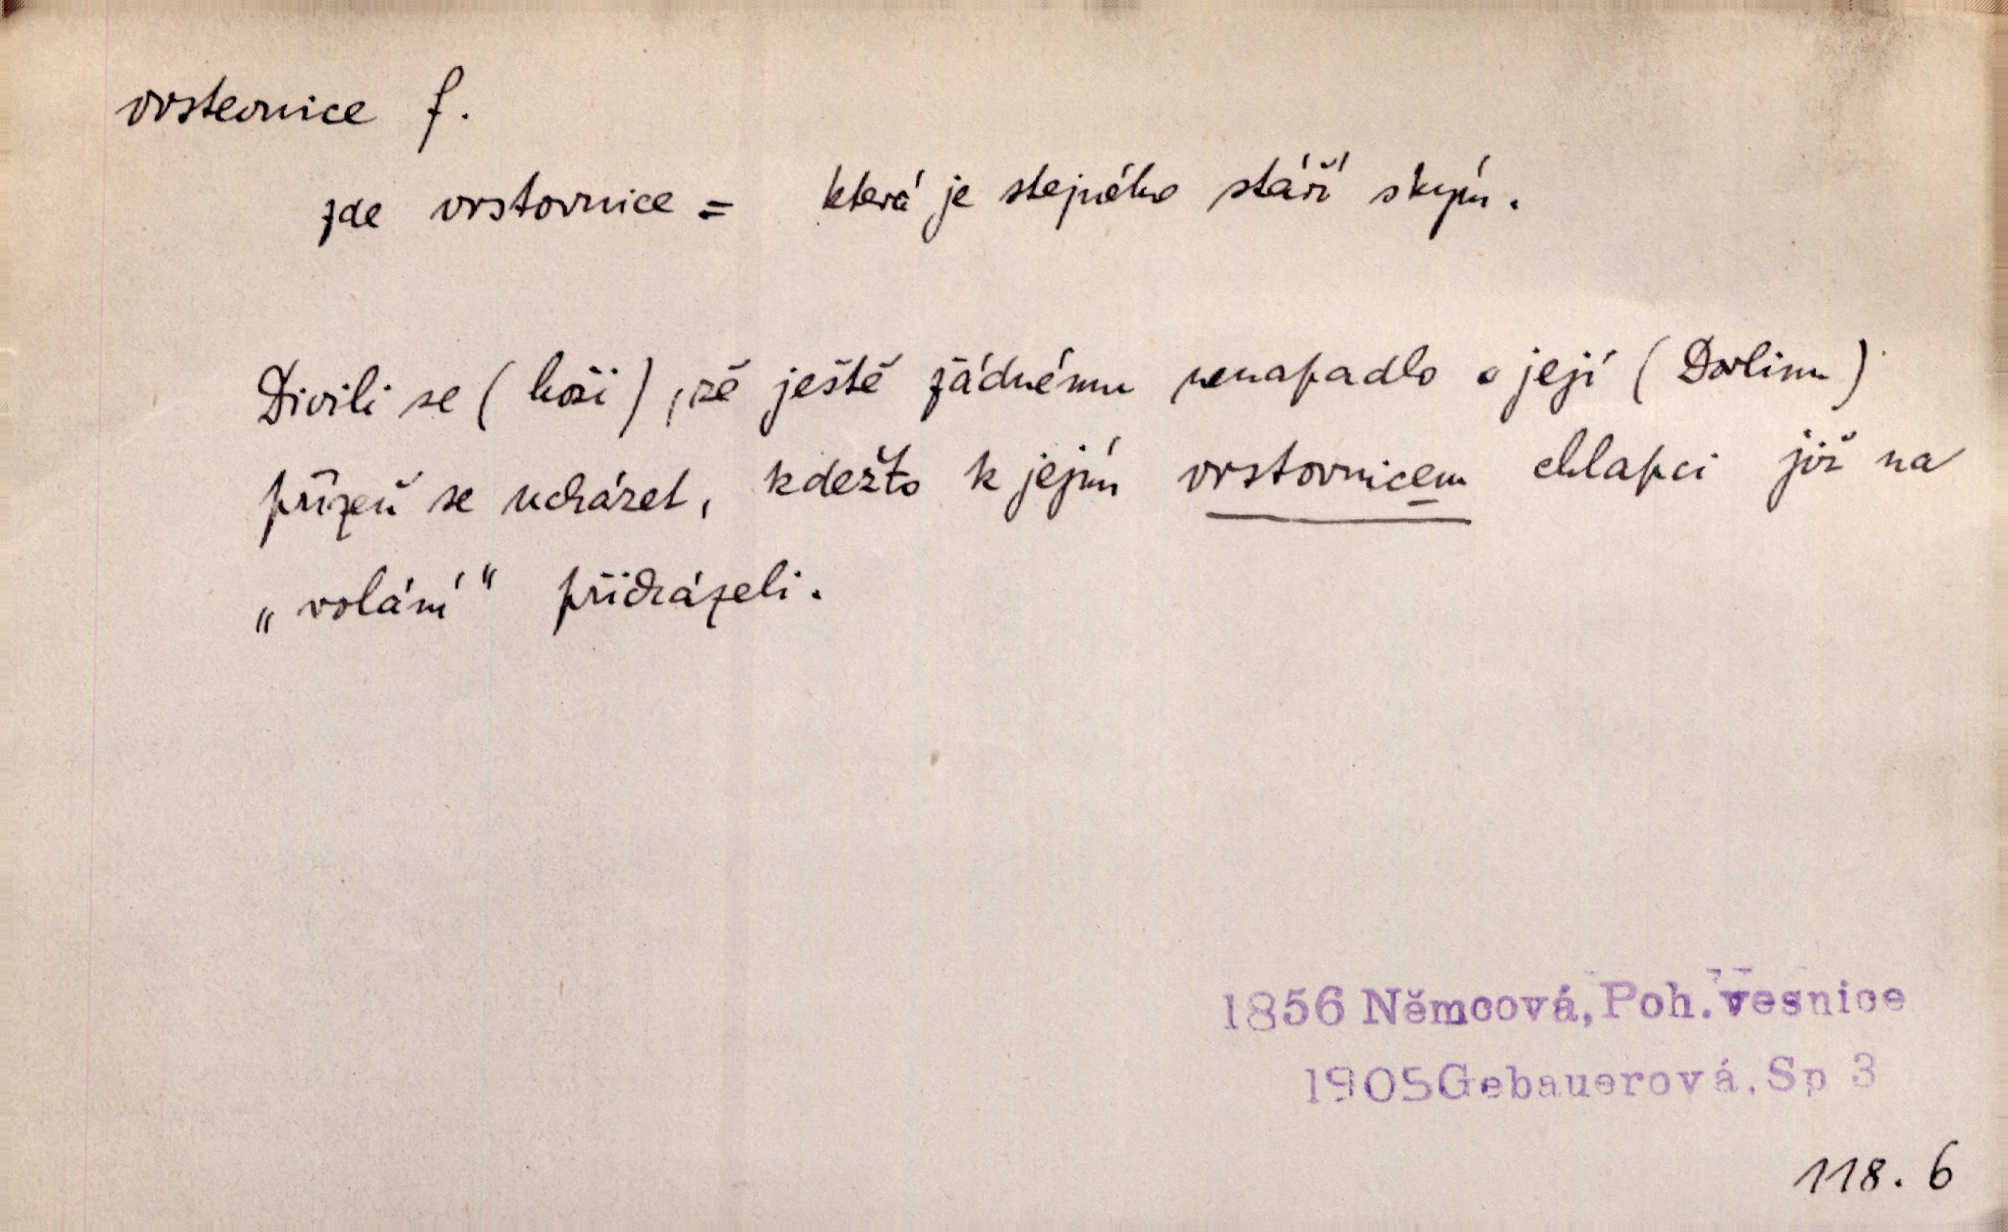 vrstevnice f.
zde vrstovnice = která je stejného stáří s kým.
Divili se (hoši), že ještě žádnému nenapadlo o její (Dorlinu)
přízeň se ucházet, kdežto k jejím vrstovnicem chlapci již na
„volání“ přicházeli.
1856 Němcová, Poh. vesnice
1905 Gebauerová, Sp 3
118. 6